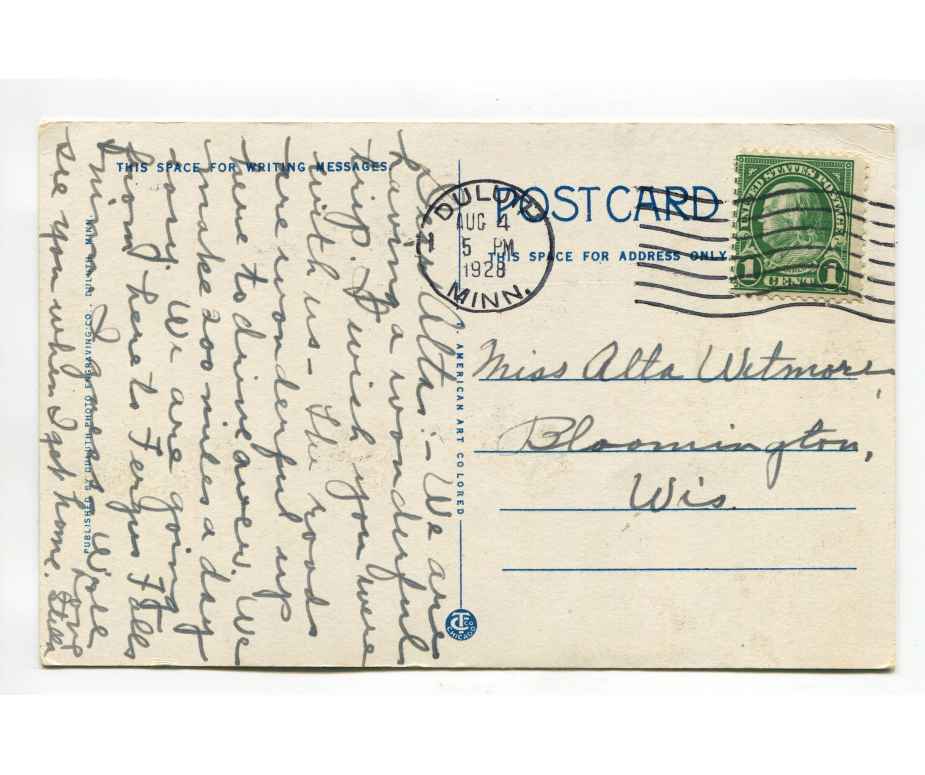 THIS SPACE FOR WRITING MESSAGES
Dear Alta:- We are
having a wonderful
trip. I wish you were
with us - The roads
are wonderful up
here to drive over. We
make 200 miles a day
easy. We are going
from here to Fergus Falls
Minn.
see you when I get home. Love
Stella
PUBLISHED BY DULUTH PHOTO ENGRAVING CO., DULUTH, MINN.
C. T. AMERICAN ART COLORED
CT CO
CHICAGO
POST CARD
THIS SPACE FOR ADDRESS ONLY
DULUTH
AUG 4
5 PM
1928
MINN.
1
UNITED STATES POSTAGE
FRANKLIN
1 CENT 1
Miss Alta Wetmore
Bloomington,
Wis.